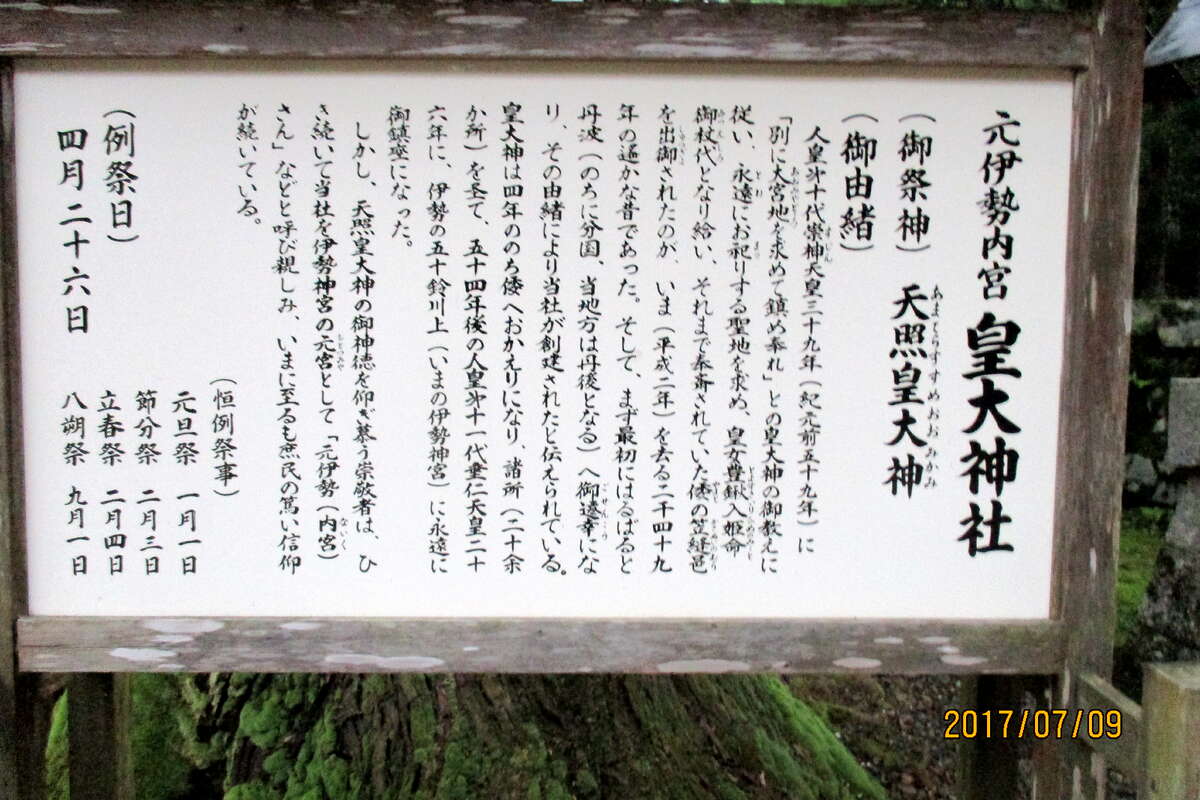 元伊勢内宮 皇大神社
(御祭神) 天照皇大神
あまてらすすめおおみかみ
(御由緒)
人皇第十代崇神天皇三十九年(紀元前五十九年)に
「別に大宮地を求めて鎮め奉れ」との皇大神の御教えに
従い、永遠にお祀りする聖地を求め、皇女豊鍬入姫命
御杖代となり給い、それまで奉斎されていた倭の笠縫邑
を出御されたのが、いま(平成二年)を去る二千四十九
年の遙かな昔であった。そして、まず最初にはるばると
丹波(のちに分国、当地方は丹後となる)へ御遷幸にな
り、その由緒により当社が創建されたと伝えられている。
皇大神は四年ののち倭へおかえりになり、諸所(二十余
か所)を圣て、五十四年後の人皇第十一代垂仁天皇二十
六年に、伊勢の五十鈴川上(いまの伊勢神宮)に永遠に
御鎮座になった。
しかし、天照皇大神の御神徳を仰ぎ慕う崇敬者は、ひ
き続いて当社を伊勢神宮の元宮として「元伊勢(内宮)
さん」などと呼び親しみ、いまに至るも庶民の篤い信仰
が続いている。
(恒例祭事)
元旦祭 一月一日
節分祭 二月三日
立春祭 二月四日
八朔祭 九月一日
(例祭日)
四月二十六日
2017/07/09